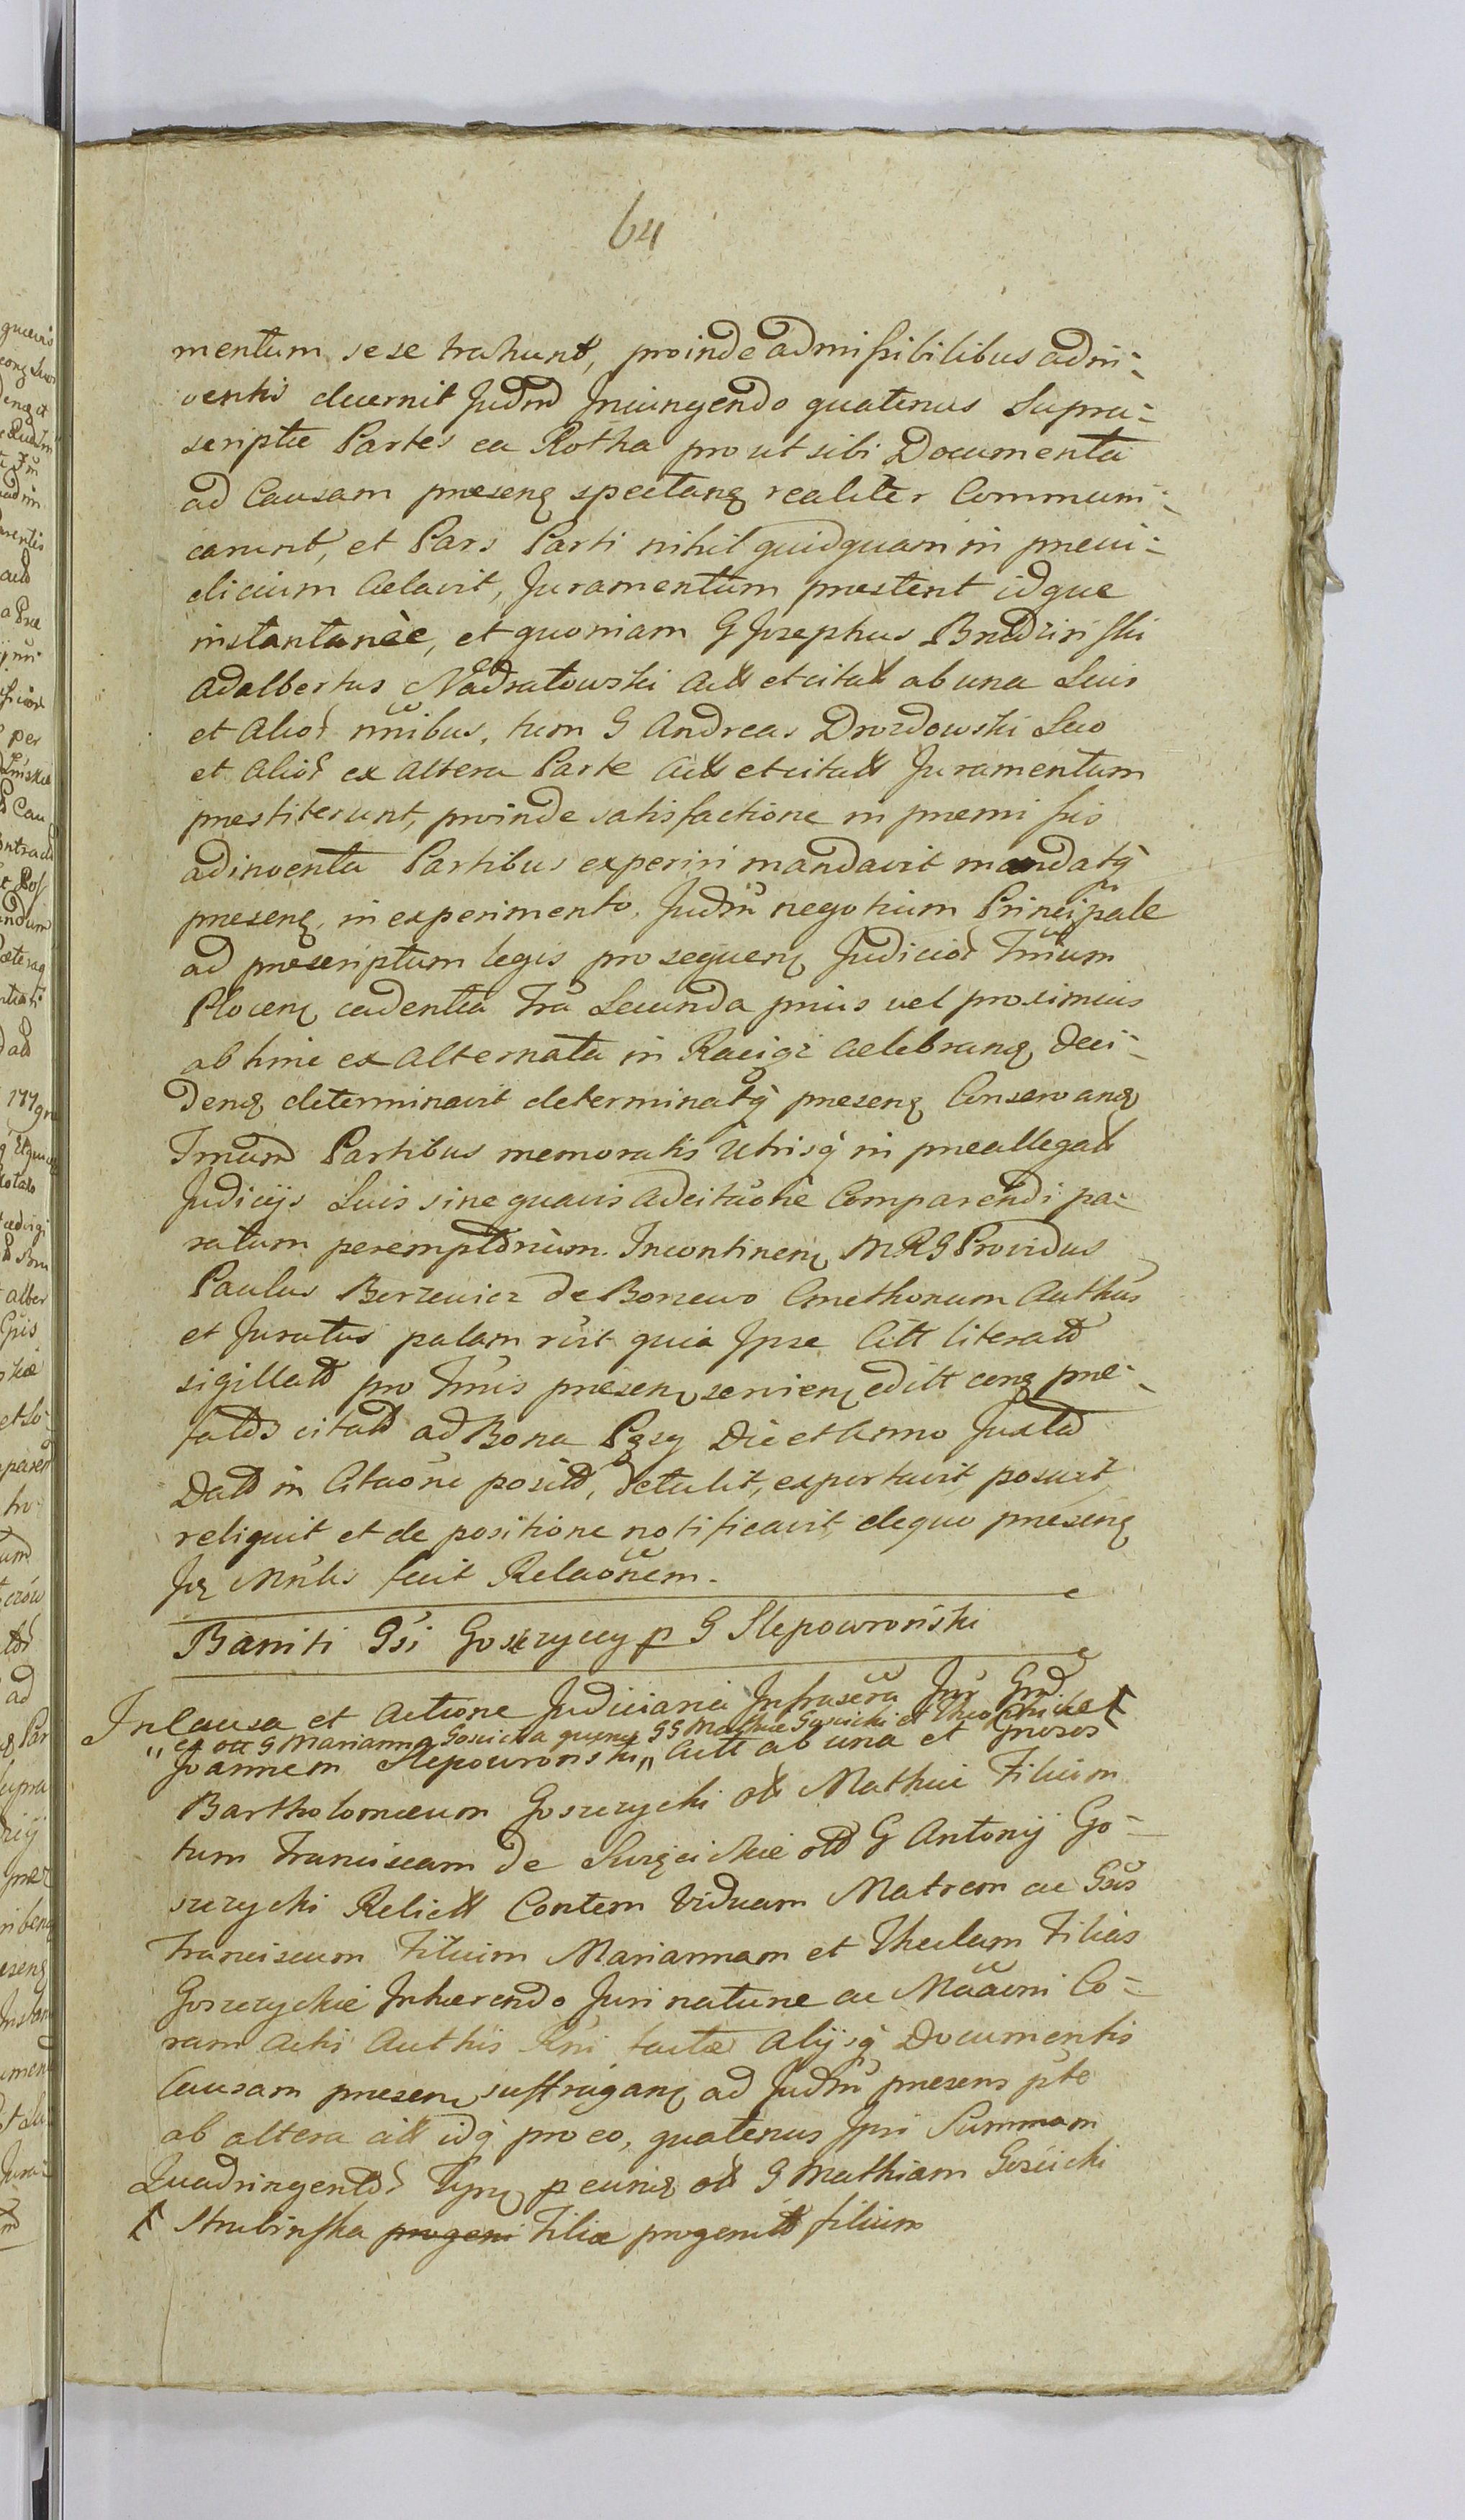 64
mentum sese trahunt, proinde admissibilibus adin-
ventis decernit Judm Injungendo quatenus Supra-
scriptæ Partes ea Rotha prout sibi Documenta
ad Causam præsenq spectanq realiter Communi-
carunt, et Pars Parti nihil quidquam in præju-
dicium Celavit, Juramentum præstent idque
instantanèe, et quoniam G Josephus Brudzinski
Adalbertus Nadratowski Actt et citatt ab una Suis
et Alior nnibus, tum G Andreas Drozdowski Suo
et Alior ex Altera Parte Actt et citatt Juramentum
præstiterunt, proinde satisfactione in præmissis
adinventa Partibus experiri mandavit mandatq
præsenq, in experimento, Judm negotium Principale
ad præscriptum legis prosequenq Judicior Trrium
Plocenq cadentia Tra Secunda prius vel proximius
ab hinc ex Alternata in Raciąż Celebranq deci-
denq determinavit determinatq præsenq Conservanq
Tmum Partibus memoratis Utrisq in præallegatt
Judicijs Suis sine quavis Adcitaone Comparendi pa-
ratum peremptorium. Incontinenq MRG Providus
Paulus Berzewicz de Borzewo Cmethonum Authus
et Juratus palam rcit quia Ipse Citt literatt
sigillatt pro Tmis præsenq servienq editt conq præ-
fatos citatt ad Bona Pgsy Die et Anno Juxta
Datt in Citaone positt, detulit, exportavit posuit
reliquit et de positione notificavit, dequo præsenq
Jz Mnlis fecit Relaonem.
Baniti Gsi Goszczyccy p G Slepowroński
In Causa et Actione Judiciaria Infrascra Inr Grd
„ ex ott G Marianna Gosicka quonq GG Mathiæ Gosicki et Theophilæ
Joannem Slepowronski „ Actt ab una et Gnosos
Bartholomæum Goszczycki ott Mathiæ Filium
tum Franciscam de Surzickie ott G Antonij Go-
szczycki Relictt Contem Viduam Matrem ac Gsos
Franciscum Filium Mariannam et Theclam Filias
Goszczyckie Inhærendo Juri naturæ ac Maaoni Co-
ram Actis Authis factæ Alijsq Documentis
Causam præsenq suffraganq ad Judm præsens pte
ab altera citt idq pro eo, quatenus Ipsi Summam
Quadringentor Tynq pecuniæ ott G Mathiam Gosicki
Strubinska progeni Filia progenitt filium